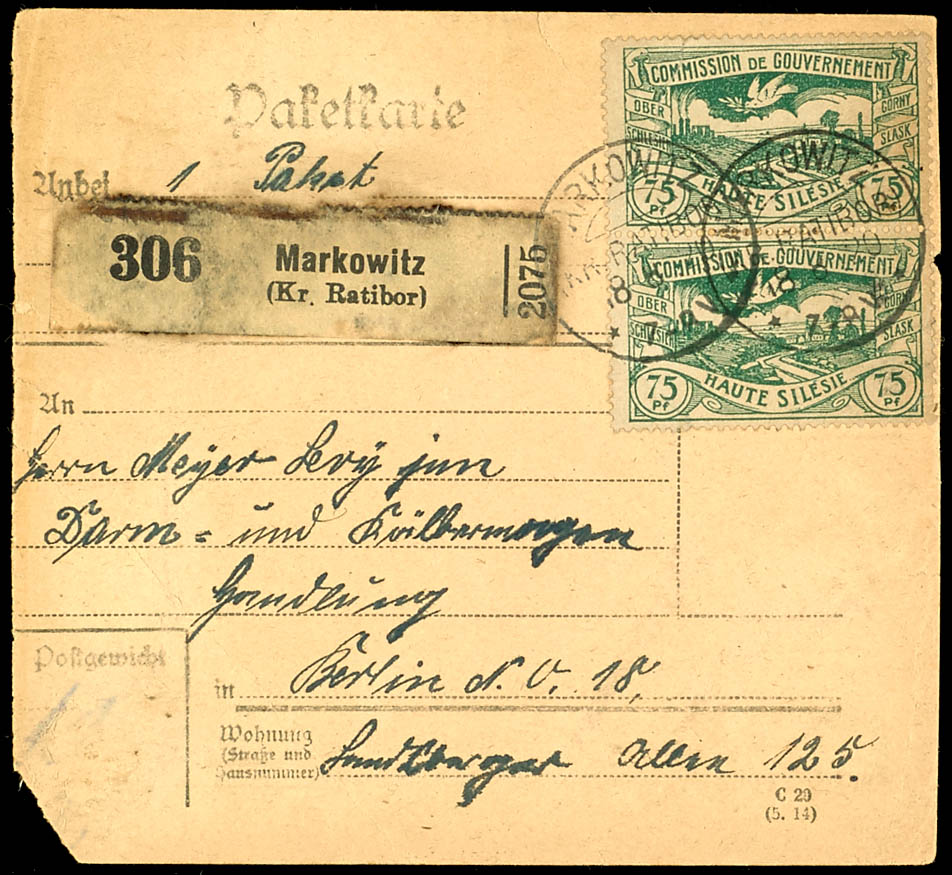 Paketkarte
COMMISSION DE GOUVERNEMENT
OBER SCHLESIEN
GORNY SLASK
75 Pf
HAUTE SILÉSIE
75 Pf
Anbei 1 Paket
306 Markowitz
(Kr. Ratibor)
2075
MARKOWITZ
RATIBOR
18
MARKOWITZ
RATIBOR
18
COMMISSION DE GOUVERNEMENT
OBER SCHLESIEN
GORNY SLASK
75 Pf
HAUTE SILÉSIE
75 Pf
An
Herrn Meÿer Levÿ jun
Darm= und Kälbermagen
Handlung
Postgewicht
in Berlin N. O. 18,
Wohnung
(Straße und
Hausnummer) Landsberger Allee 125.
C 29
(5. 14)